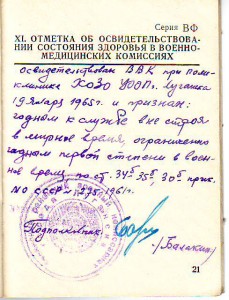 Серия ВФ
XI. ОТМЕТКА ОБ ОСВИДЕТЕЛЬСТВОВА-
НИИ СОСТОЯНИЯ ЗДОРОВЬЯ В ВОЕННО-
МЕДИЦИНСКИХ КОМИССИЯХ
освидетельствован ВВК при поли-
клинике ХОЗО УООП г. Луганска
19 января 1965 г. и признан:
годном к службе вне строя
в мирное время, ограниченно
годном первой степени в воен-
ное время по ст. 34б 35б, 30б прик.
МО СССР № 275, 1961 г.
Подполковник
/Балакин/
21